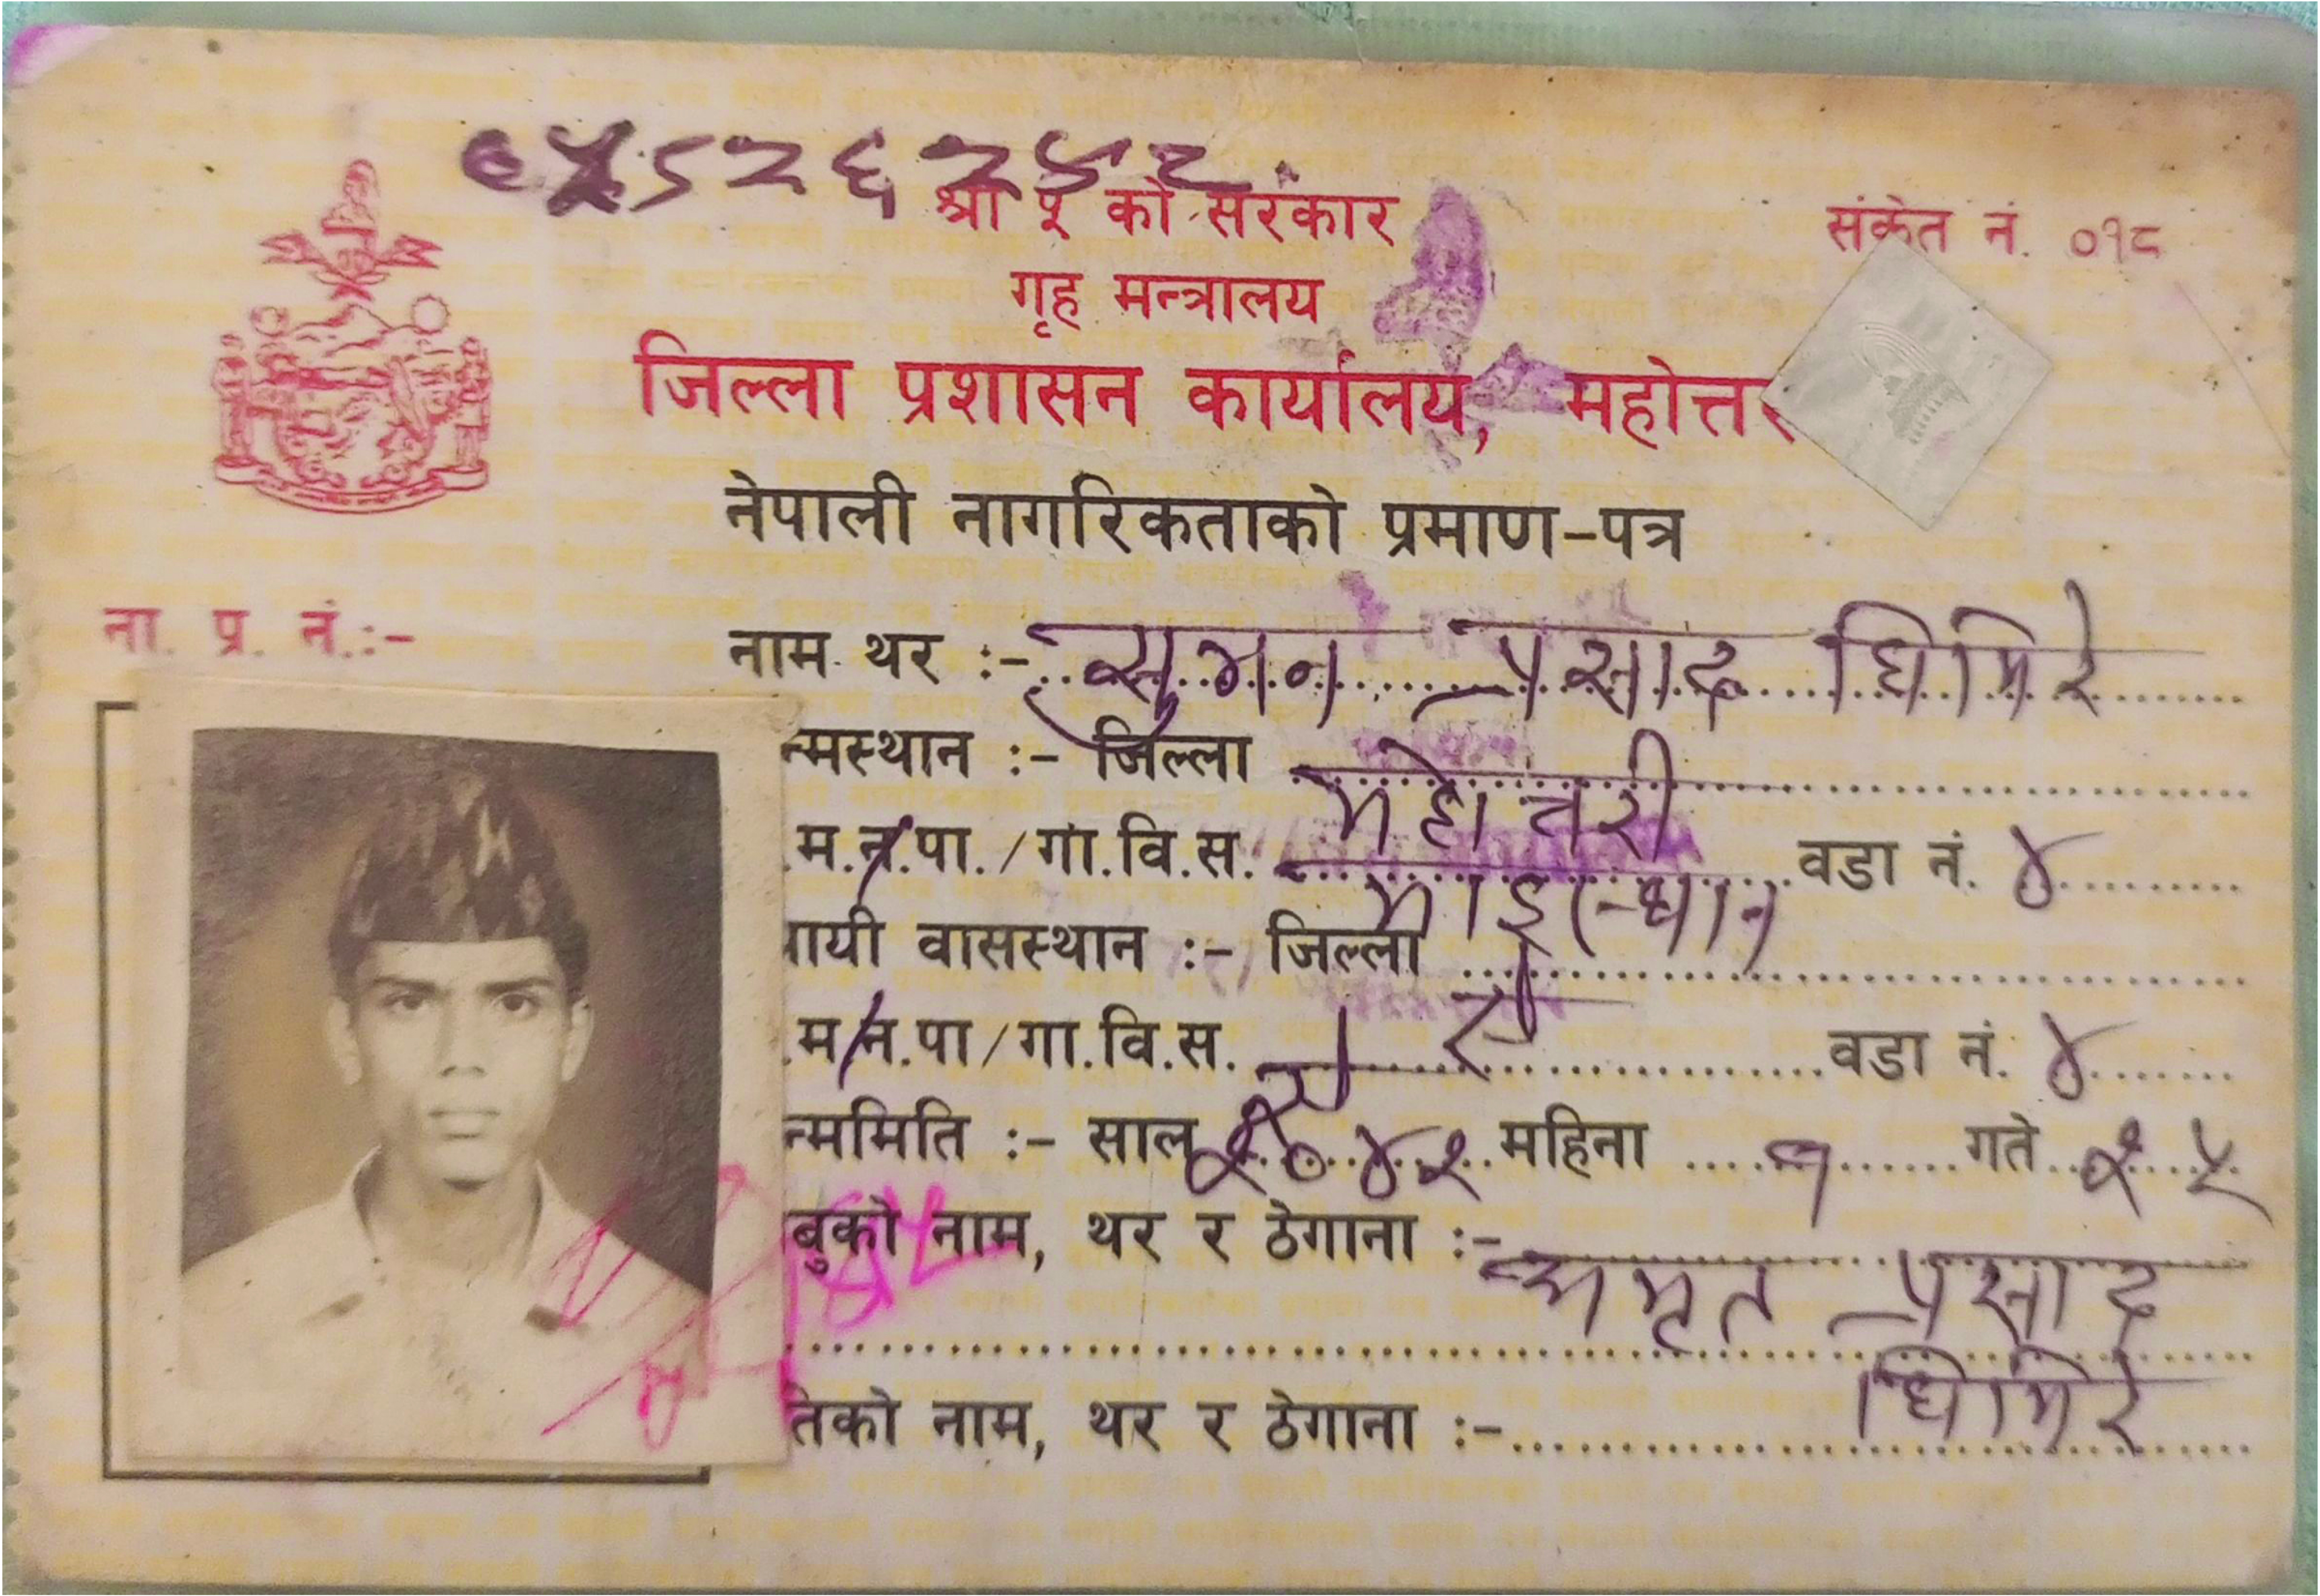 श्री ५ को सरकार
संकेत नं. ०१८
गृह मन्त्रालय
जिल्ला प्रशासन कार्यालय, महोत्त
नेपाली नागरिकताको प्रमाण-पत्र
ना. प्र. नं.:-
नाम थर :- सुमन प्रसाद घिमिरे
न्मस्थान :- जिल्ला महोत्तरी
.म.न.पा./गा.वि.स. माईस्थान वडा नं. ४
ायी वासस्थान :- जिल्ला
.म.न.पा/गा.वि.स. वडा नं. ४
न्ममिति :- साल २०४२ महिना १ गते २५
बुको नाम, थर र ठेगाना :- अमृत प्रसाद
घिमिरे
तिको नाम, थर र ठेगाना :-